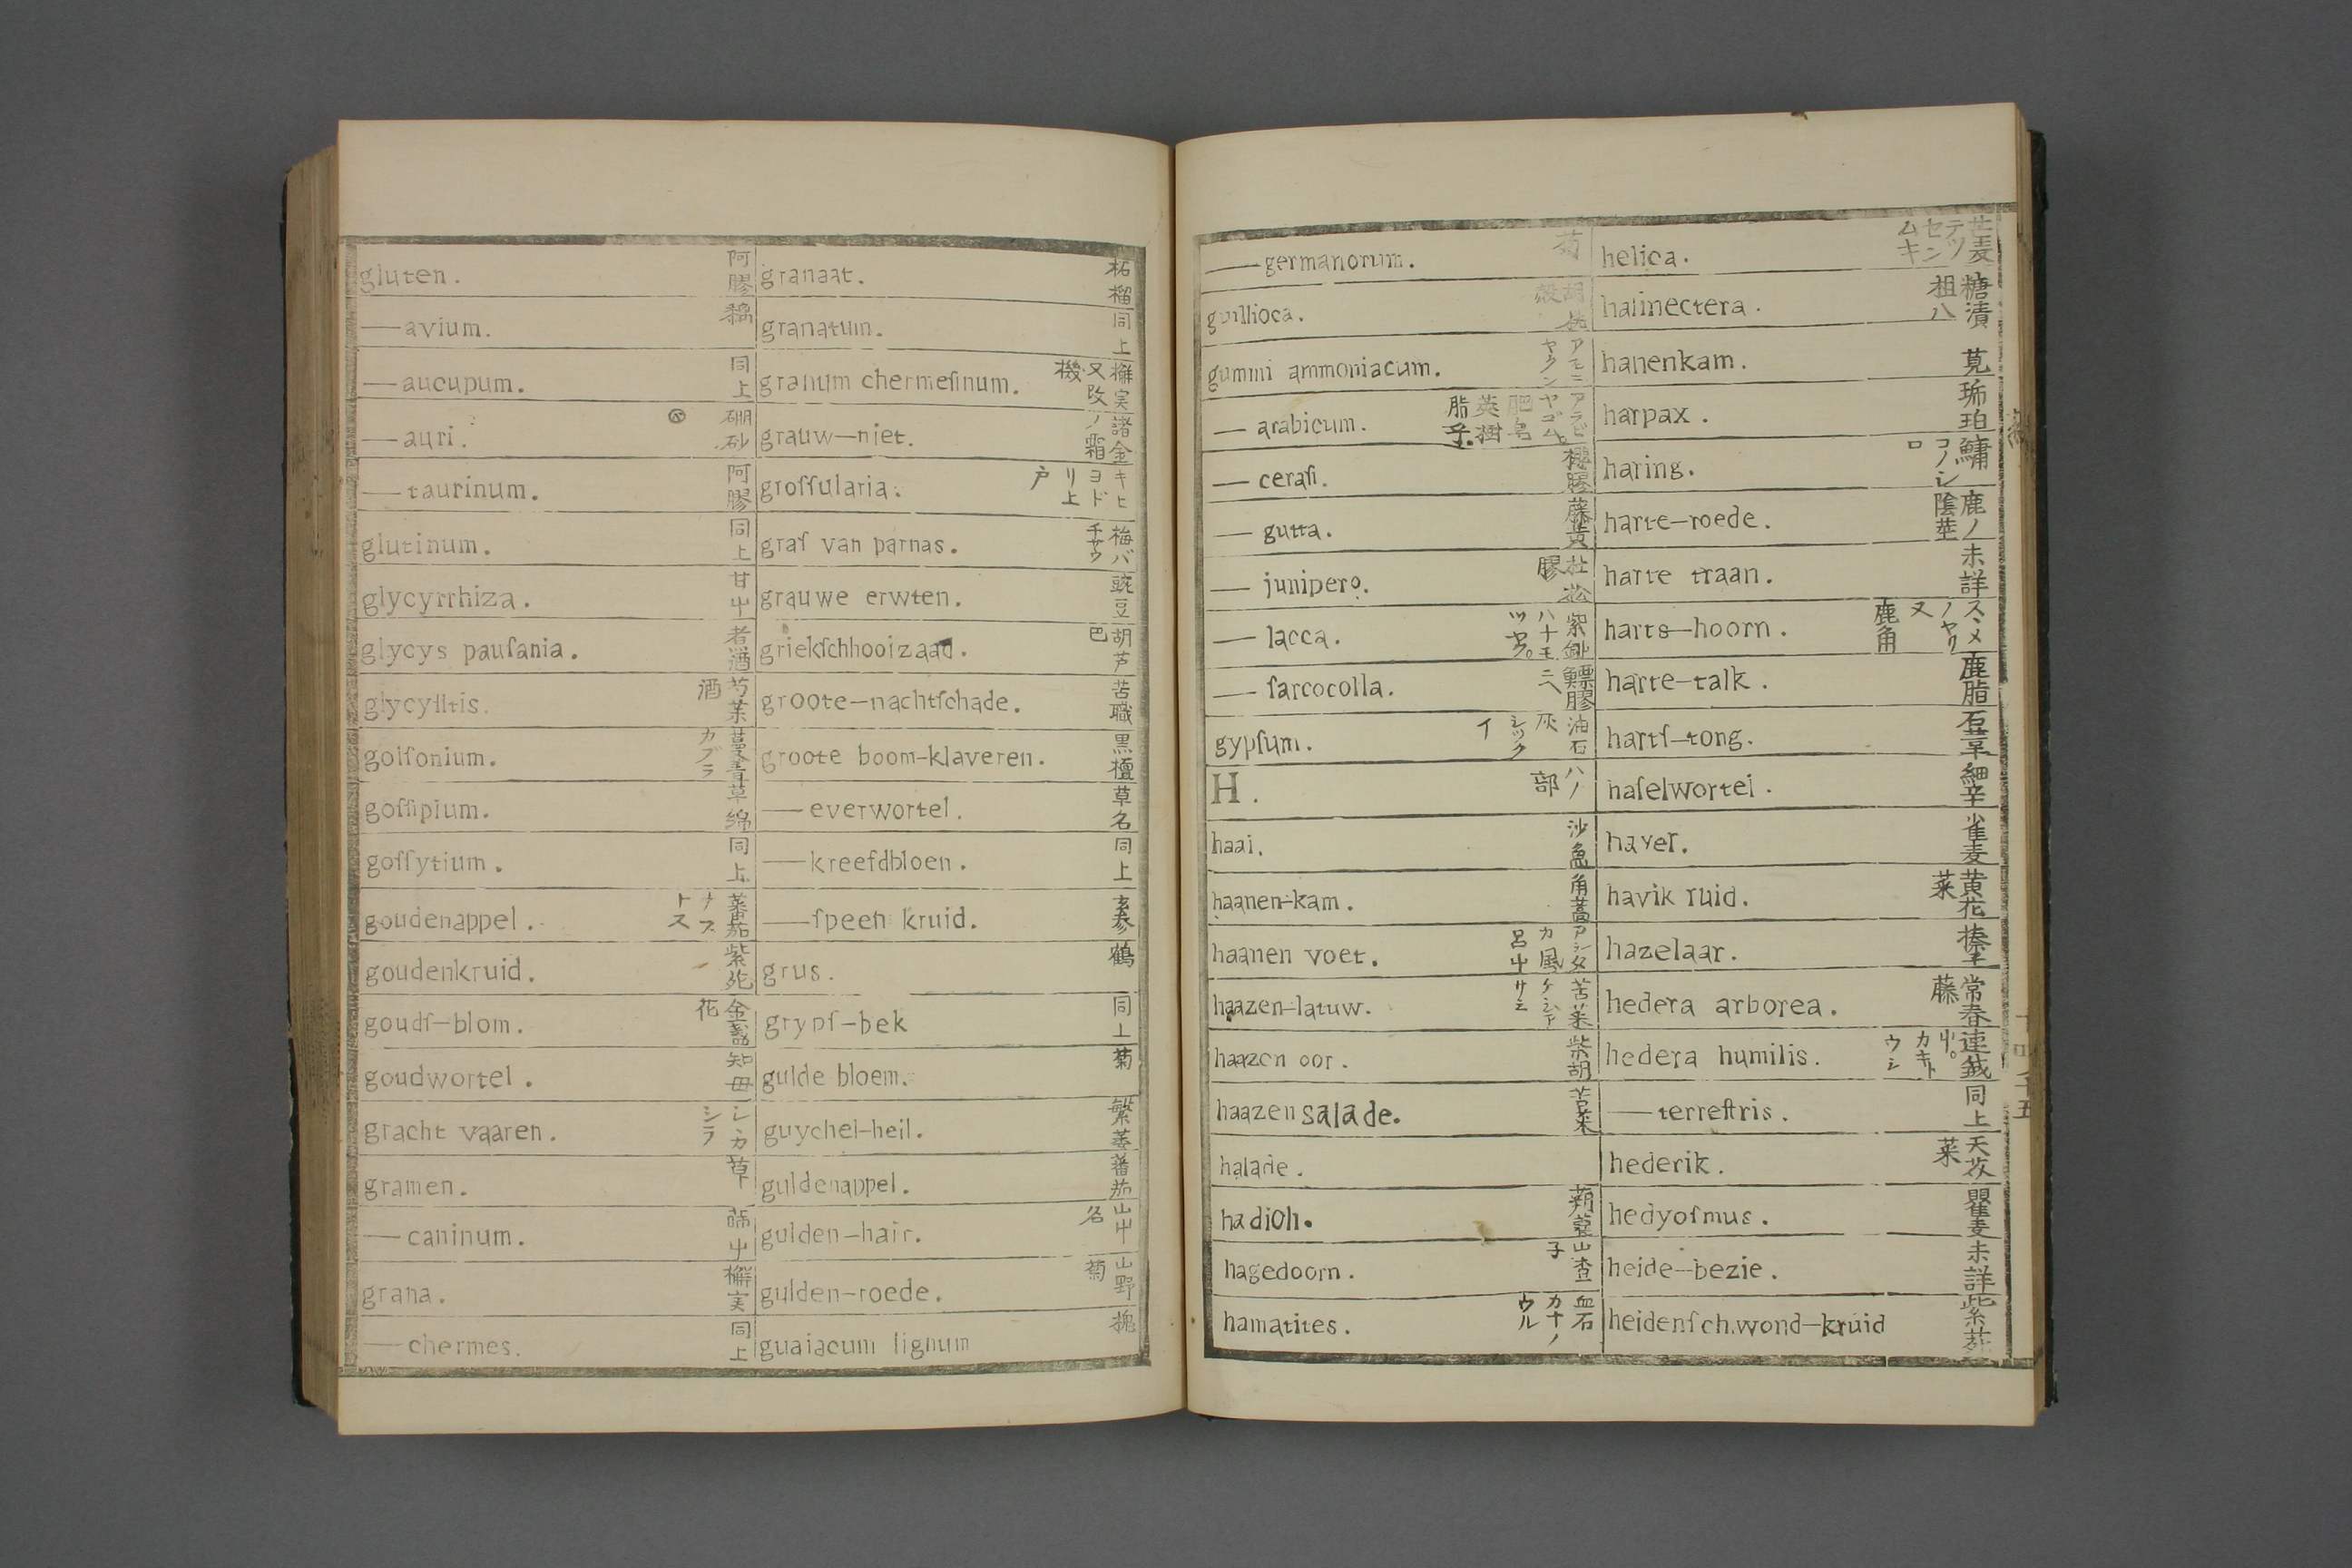 gluten. 阿膠
—avium. 黐
—aucupum. 同上
—auri. 硼砂
—taurinum. 阿膠
glutinum. 同上
glycyrrhiza. 甘屮
glycys pauſania.
glycyſitis.
golſonium. 蔓菁 カブラ
goſſipium. 草綿
goſſytium. 同上
goudenappel. 蕃茄
goudenkruid. 紫苑
goudſ—blom. 金盞花
goudwortel. 知母
gracht vaaren.
gramen. 草
—caninum.
grana. 檞実
—chermes. 同上
granaat. 柘榴
granatum. 同上
granum chermeſinum. 檞実
grauw—niet. 諸金ノ霜
groſſularia.
graſ van parnas. 梅バチサウ
grauwe erwten. 豌豆
griekſchhooizaad. 胡芦巴
groote—nachtſchade. 苦職
groote boom-klaveren. 黒檀
—everwortel. 草名
—kreefdbloen. 同上
—ſpeen kruid. 玄参
grus. 鶴
grypſ—bek 同上
gulde bloem. 菊
guychel—heil. 繁蔞
guldenappel. 蕃茄
gulden—hair. 山屮名
gulden—roede. 山野菊
guaiacum lignum
—germanorum.
guillioca.
gummi ammoniacum. アモニヤクン
—arabicum. アラビヤゴム
—ceraſi. 櫻膠
—gutta. 藤黄
—junipero. 杜松膠
—lacca. 紫鉚
—ſarcocolla.
gypſum. 油石灰 シツクイ
H. ハノ部
haai. 沙魚
haanen—kam. 角蒿
haanen voet.
haazen—latuw. 苦菜 ケシアサミ
haazen oor. 柴胡
haazen salade. 苦菜
halade.
hadioh. 蒴藋
hagedoorn. 山査子
hamatites. 血石
helica.
halinectera. 糖漬
hanenkam. 莧
harpax. 琥珀
haring. コノシロ
harte—roede. 鹿ノ陰莖
harte traan. 未詳
harts—hoorn. 又鹿角
harte—talk. 鹿脂
hartſ—tong.
haſelwortel. 細辛
haver. 雀麦
havik ruid. 黄花菜
hazelaar. 榛
hedera arborea. 常春藤
hedera humilis. 連錢屮。カキトウシ
—terreſtris. 同上
hederik.
hedyoſmus. 瞿麦
heide—bezie. 未詳
heidenſch.wond—kruid 紫苑